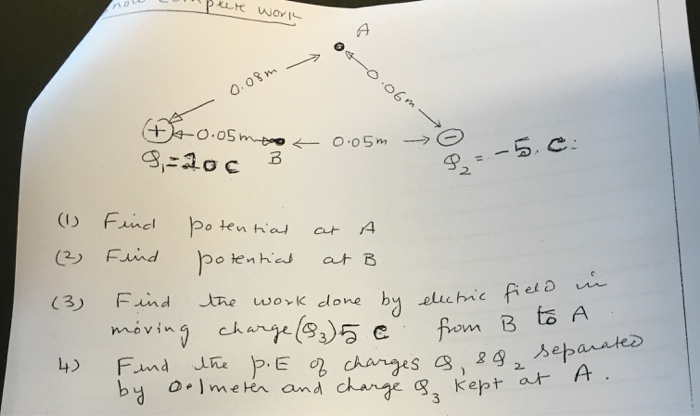 complete work
A
0.08m
0.06m
+ 0.05m 0.05m −
B
Q₁=20 C
Q₂ = -5. C.
(1) Find potential at A
(2) Find potential at B
(3) Find the work done by electric field in
moving charge (Q₃) 5 C from B to A
4) Find the P.E of charges Q₁ & Q₂ separated
by 0.1 meter and charge Q₃ kept at A.